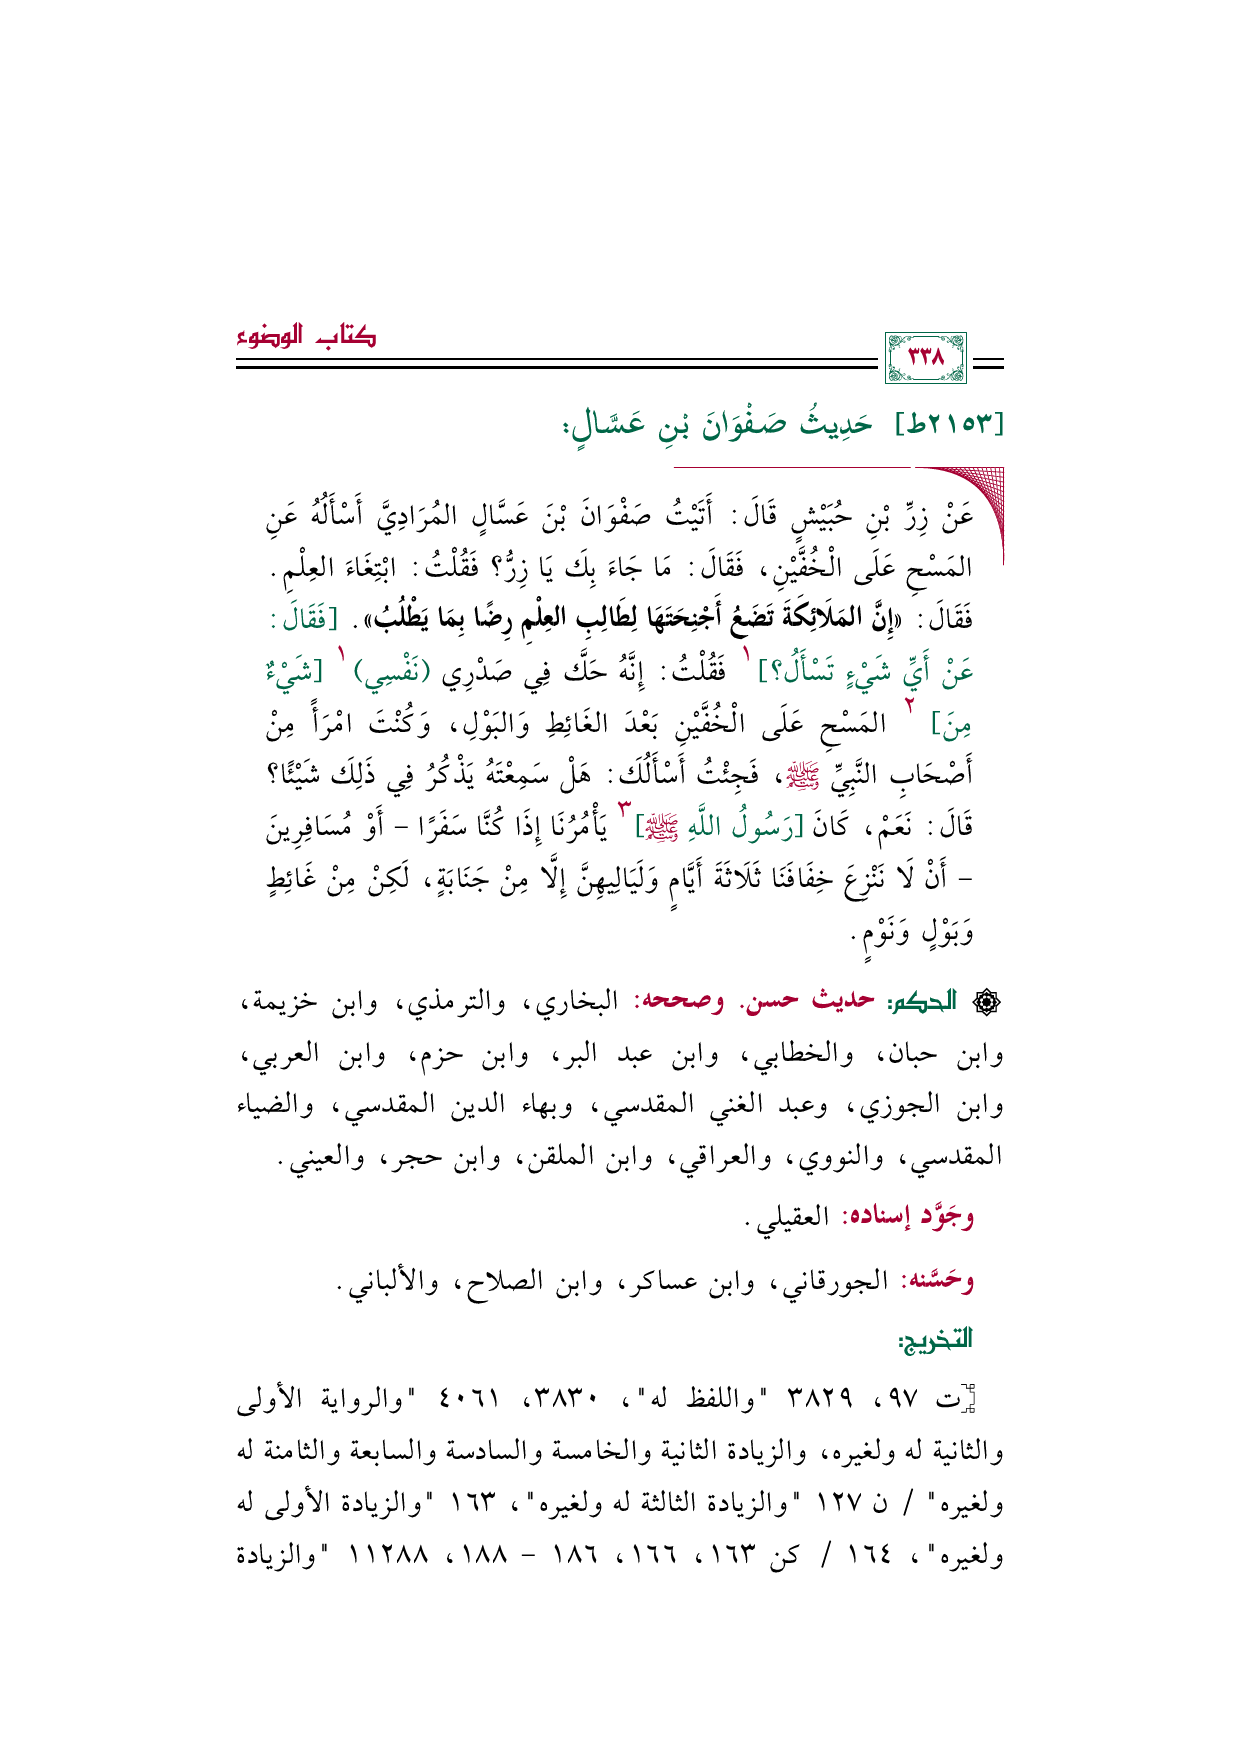 كتاب الوضوء
٣٣٨
[٢١٥٣ط] حَدِيثُ صَفْوَانَ بْنِ عَسَّالٍ:
عَنْ زِرِّ بْنِ حُبَيْشٍ قَالَ: أَتَيْتُ صَفْوَانَ بْنَ عَسَّالٍ المُرَادِيَّ أَسْأَلُهُ عَنِ
المَسْحِ عَلَى الْخُفَّيْنِ، فَقَالَ: مَا جَاءَ بِكَ يَا زِرُّ؟ فَقُلْتُ: ابْتِغَاءَ العِلْمِ.
فَقَالَ: «إِنَّ المَلَائِكَةَ تَضَعُ أَجْنِحَتَهَا لِطَالِبِ العِلْمِ رِضًا بِمَا يَطْلُبُ». [فَقَالَ:
عَنْ أَيِّ شَيْءٍ تَسْأَلُ؟]١ فَقُلْتُ: إِنَّهُ حَكَّ فِي صَدْرِي (نَفْسِي)١ [شَيْءٌ
مِنَ]٢ المَسْحِ عَلَى الْخُفَّيْنِ بَعْدَ الغَائِطِ وَالبَوْلِ، وَكُنْتَ امْرَأً مِنْ
أَصْحَابِ النَّبِيِّ ﷺ، فَجِئْتُ أَسْأَلُكَ: هَلْ سَمِعْتَهُ يَذْكُرُ فِي ذَلِكَ شَيْئًا؟
قَالَ: نَعَمْ، كَانَ [رَسُولُ اللَّهِ ﷺ]٣ يَأْمُرُنَا إِذَا كُنَّا سَفَرًا – أَوْ مُسَافِرِينَ
– أَنْ لَا نَنْزِعَ خِفَافَنَا ثَلَاثَةَ أَيَّامٍ وَلَيَالِيهِنَّ إِلَّا مِنْ جَنَابَةٍ، لَكِنْ مِنْ غَائِطٍ
وَبَوْلٍ وَنَوْمٍ.
الحكم: حديث حسن. وصححه: البخاري، والترمذي، وابن خزيمة،
وابن حبان، والخطابي، وابن عبد البر، وابن حزم، وابن العربي،
وابن الجوزي، وعبد الغني المقدسي، وبهاء الدين المقدسي، والضياء
المقدسي، والنووي، والعراقي، وابن الملقن، وابن حجر، والعيني.
وجَوَّد إسناده: العقيلي.
وحَسَّنه: الجورقاني، وابن عساكر، وابن الصلاح، والألباني.
التخريج:
[ت ٩٧، ٣٨٢٩ "واللفظ له"، ٣٨٣٠، ٤٠٦١ "والرواية الأولى
والثانية له ولغيره، والزيادة الثانية والخامسة والسادسة والسابعة والثامنة له
ولغيره" / ن ١٢٧ "والزيادة الثالثة له ولغيره"، ١٦٣ "والزيادة الأولى له
ولغيره"، ١٦٤ / كن ١٦٣، ١٦٦، ١٨٦ – ١٨٨، ١١٢٨٨ "والزيادة